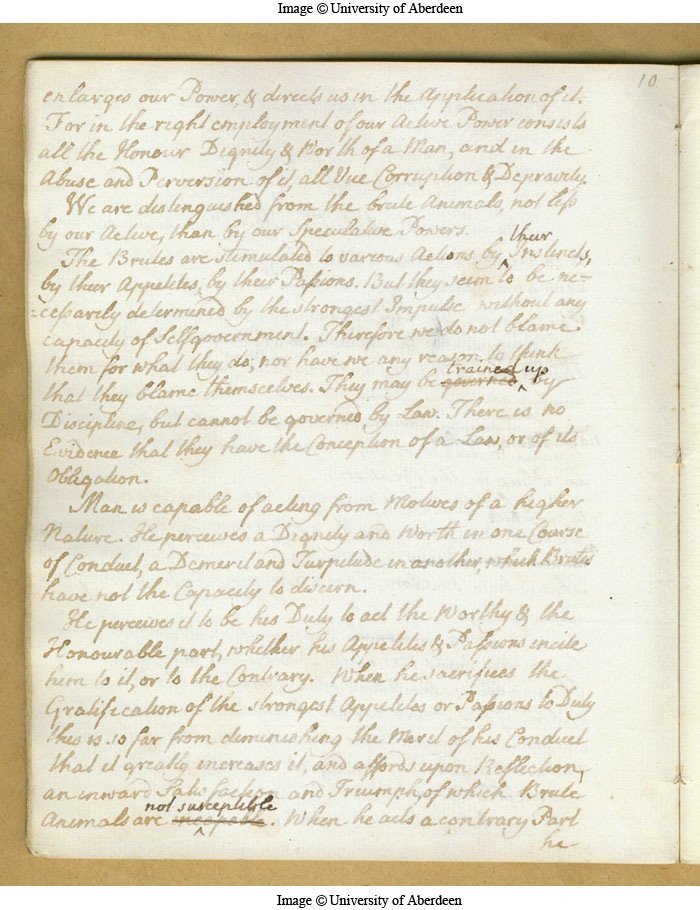 Image © University of Aberdeen
10
enlarges our Power, & directs us in the Application of it.
For in the right employment of our Active Power consists
all the Honour Dignity & Worth of a Man, and in the
Abuse and Perversion of it, all Vice Corruption & Depravity.
We are distinguished from the brute Animals, not less
by our Active, than by our Speculative Powers.
their
The Brutes are stimulated to various Actions by Instincts,
by their Appetites, by their Passions. But they seem to be ne=
=cessarily determined by the strongest Impulse without any
capacity of Selfgovernment. Therefore we do not blame
them for what they do; nor have we any reason to think
trained up
that they blame themselves. They may be governed by
Discipline, but cannot be governed by Law. There is no
Evidence that they have the Conception of a Law, or of its
Obligation.
Man is capable of acting from Motives of a higher
Nature. He perceives a Dignity and Worth in one Course
of Conduct, a Demerit and Turpitude in another, which Brutes
have not the Capacity to discern.
He perceives it to be his Duty to act the Worthy & the
Honourable part, whether his Appetites & Passions incite
him to it, or to the Contrary. When he sacrifices the
Gratification of the strongest Appetites or Passions to Duty
this is so far from diminishing the Merit of his Conduct
that it greatly increases it, and affords upon Reflection,
an inward Satisfaction and Triumph, of which Brute
not susceptible
Animals are incapable. When he acts a contrary Part
he
Image © University of Aberdeen